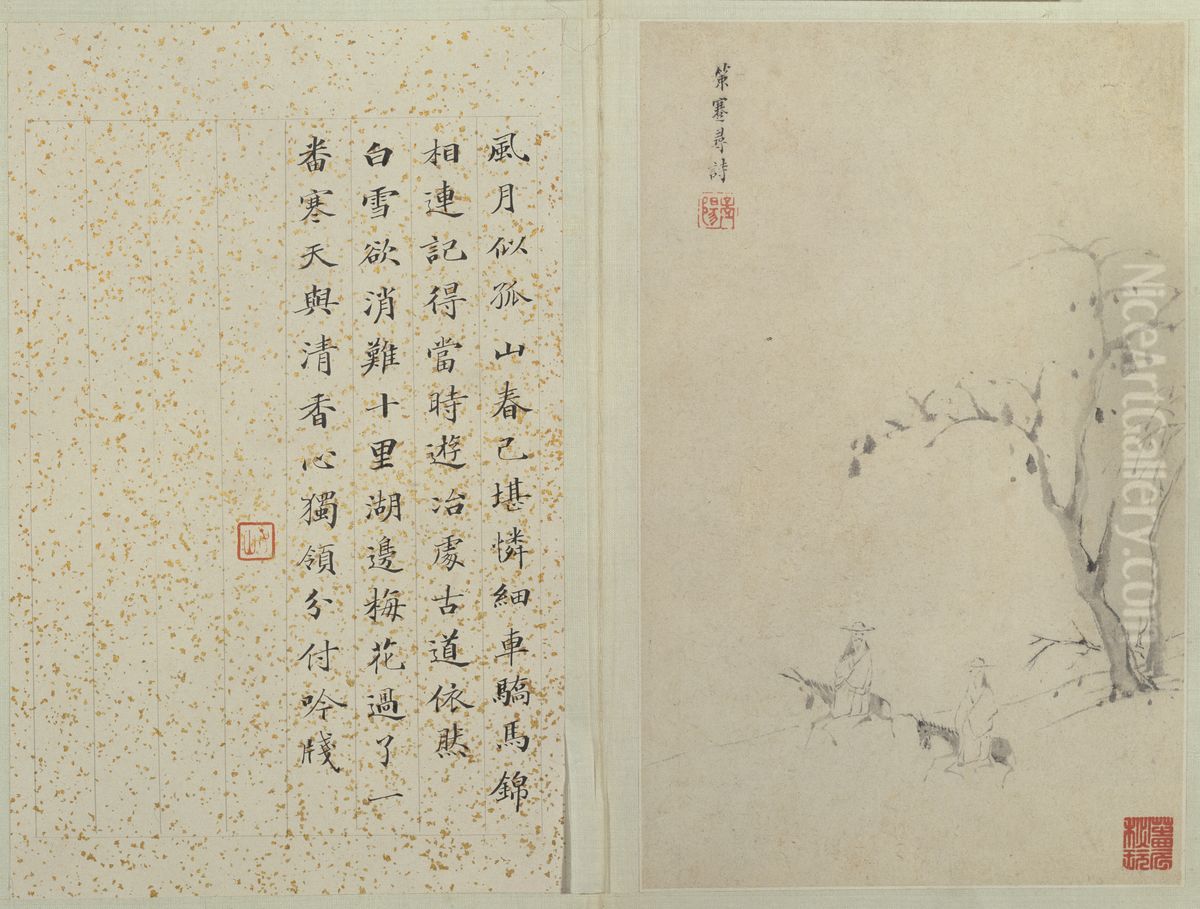 策蹇尋詩
風月似孤山春已堪憐細車驕馬錦
相連記得當時遊冶處古道依然
白雪欲消難十里湖邊梅花過了一
番寒天與清香心獨領分付吟牋
NiceArtGallery.com